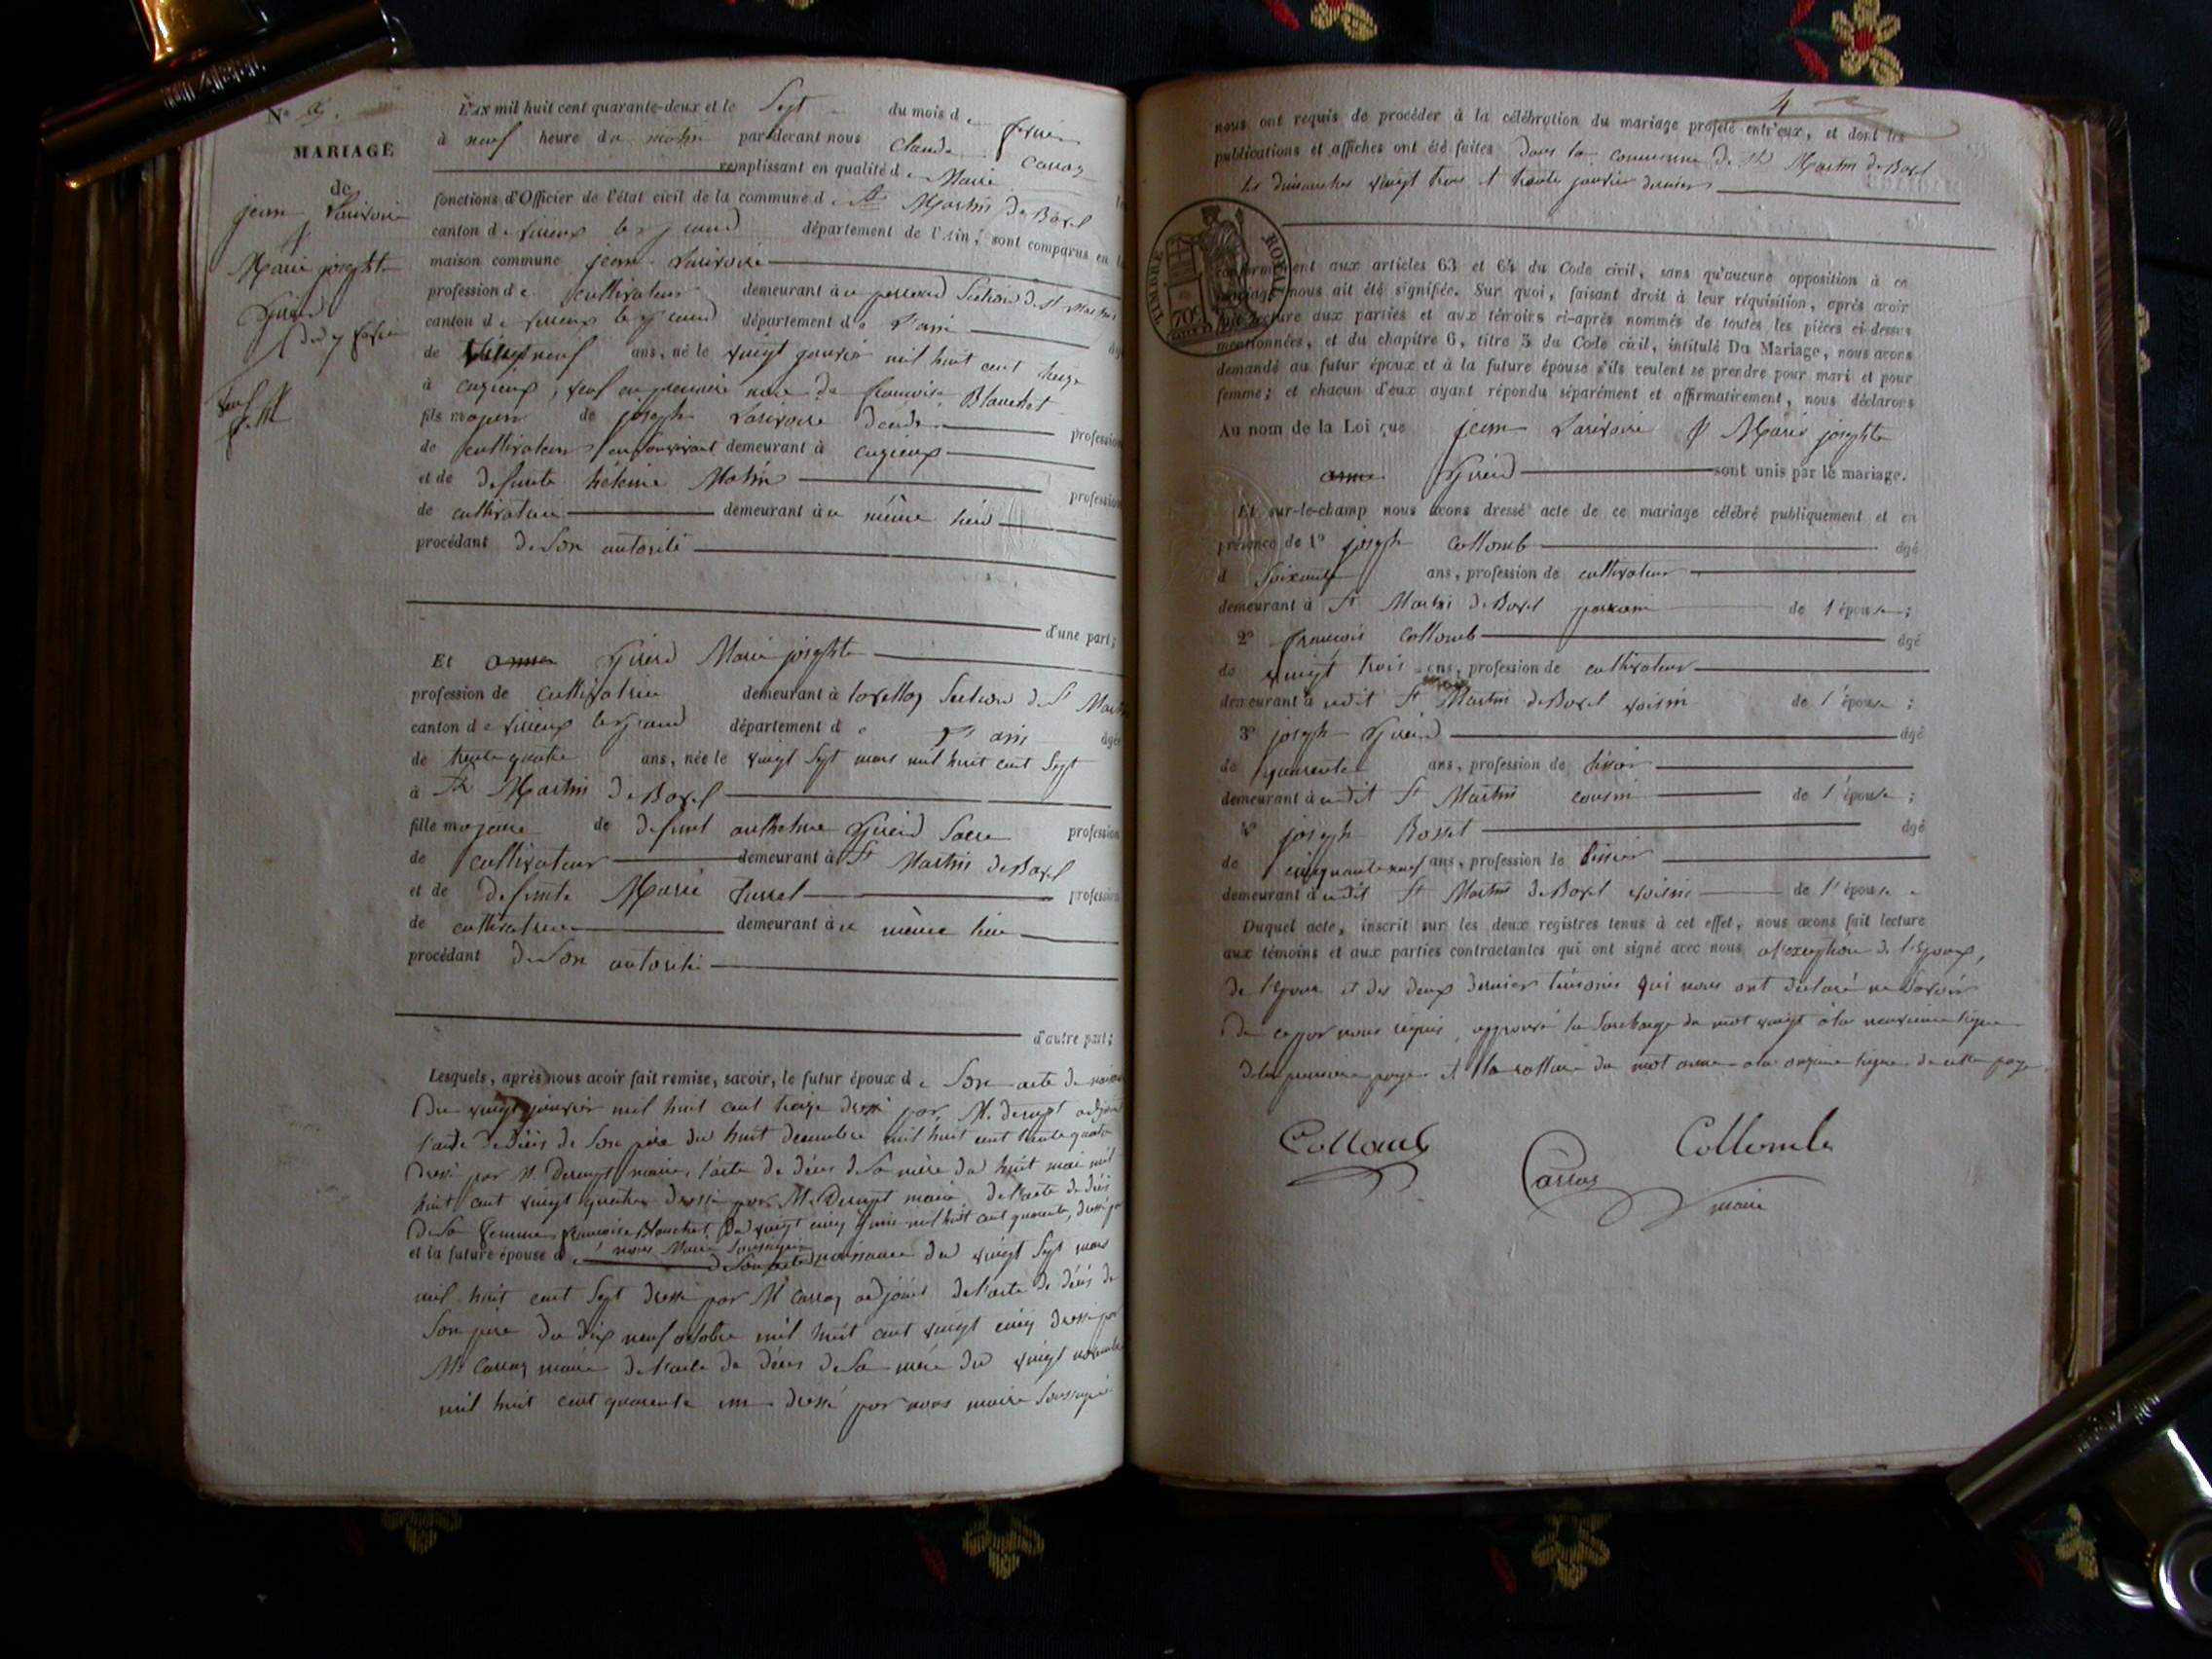 N° 2.
MARIAGE
de
jean Larivoire
et
Marie josephte
Girerd
du 7 fevrier
Veuf
fille
L'AN mil huit cent quarante-deux et le Sept du mois de fevrier
à neuf heure du matin pardevant nous Claude Carraz
remplissant en qualité de Maire
fonctions d'Officier de l'état civil de la commune de St Martin de Bavel
canton de virieux le grand département de l'Ain, sont comparus en
maison commune jean Larivoire
profession de cultivateur demeurant à Section de St Martin
canton de virieux le grand département de L'ain
de vingt neuf ans, né le vingt janvier mil huit cent treize
à cuzieux, veuf en premiere noce de francoise Blanchet
fils majeur de joseph Larivoire décédé profession
de cultivateur en son vivant demeurant à cuzieux
et de defunte héleine Matin profession
de cultivatrice demeurant au même lieu
procédant de son autorité
d'une part;
Et anne Girerd Marie josephte
profession de cultivatrice demeurant à Section de St Martin
canton de virieux le grand département de l'ain âgé
de trente quatre ans, née le vingt sept mars mil huit cent sept
à St Martin de Bavel
fille majeure de defunt anthelme Girerd profession
de cultivateur demeurant à St Martin de Bavel
et de defunte Marie profession
de cultivatrice demeurant au même lieu
procédant de son autorité
d'autre part;
Lesquels, après nous avoir fait remise, savoir, le futur époux de son acte de
Du vingt janvier mil huit cent treize dressé par M. decrept adjoint
l'acte de décès de son père du huit decembre mil huit cent trente quatre
dressé par M. Decrept maire, l'acte de décès de sa mère du huit mai mil
huit cent vingt quatre dressé par M. Decrept maire, de l'acte de décès
de sa femme francoise Blanchet, du vingt cinq mil huit cent quarante, dressé par
et la future épouse de nous Maire soussigné de son acte naissance du vingt sept mars
mil huit cent sept dressé par M Carraz adjoint de l'acte de décès de
son père du dix neuf octobre mil huit cent vingt cinq dressé par
Mr Carraz maire de l'acte de décès de sa mère du vingt novembre
mil huit cent quarante un dressé par nous maire soussigné
4
nous ont requis de procéder à la célébration du mariage projeté entr'eux, et dont les
publications et affiches ont été faites dans la commune de St Martin de Bavel
les dimanches vingt trois et trente janvier dernier
TIMBRE ROYAL
70c
conformément aux articles 63 et 64 du Code civil, sans qu'aucune opposition à ce
mariage nous ait été signifiée. Sur quoi, faisant droit à leur réquisition, après avoir
fait lecture aux parties et aux témoins ci-après nommés de toutes les pièces ci-dessus
mentionnées, et du chapitre 6, titre 5 du Code civil, intitulé Du Mariage, nous avons
demandé au futur époux et à la future épouse s'ils veulent se prendre pour mari et pour
femme; et chacun d'eux ayant répondu séparément et affirmativement, nous déclarons
Au nom de la Loi que jean Larivoire et Marie josephte
anne Girerd sont unis par le mariage.
Et sur-le-champ nous avons dressé acte de ce mariage célébré publiquement et en
présence de 1° joseph Collomb âgé
d soixante ans, profession de cultivateur
demeurant à St Martin de Bavel parrain de l'épouse;
2° francois Collomb âgé
de vingt trois ans, profession de cultivateur
demeurant à udit St Martin de Bavel voisin de l'épouse;
3° joseph Girerd âgé
de quarante ans, profession de tissier
demeurant à udit St Martin cousin de l'épouse;
4° joseph Rosset âgé
de cinquante neuf ans, profession de tissier
demeurant à udit St Martin de Bavel voisin de l'épouse
Duquel acte, inscrit sur les deux registres tenus à cet effet, nous avons fait lecture
aux témoins et aux parties contractantes qui ont signé avec nous a l'exception de l'epoux,
de l'epouse et des deux dernier témoins qui nous ont déclaré ne savoir
de ce par nous requis, approuvé la surcharge du mot vingt à la neuvieme ligne
de la premiere page et la rature du mot anne a la onzieme ligne de cette page.
Collomb Carraz maire Collomb